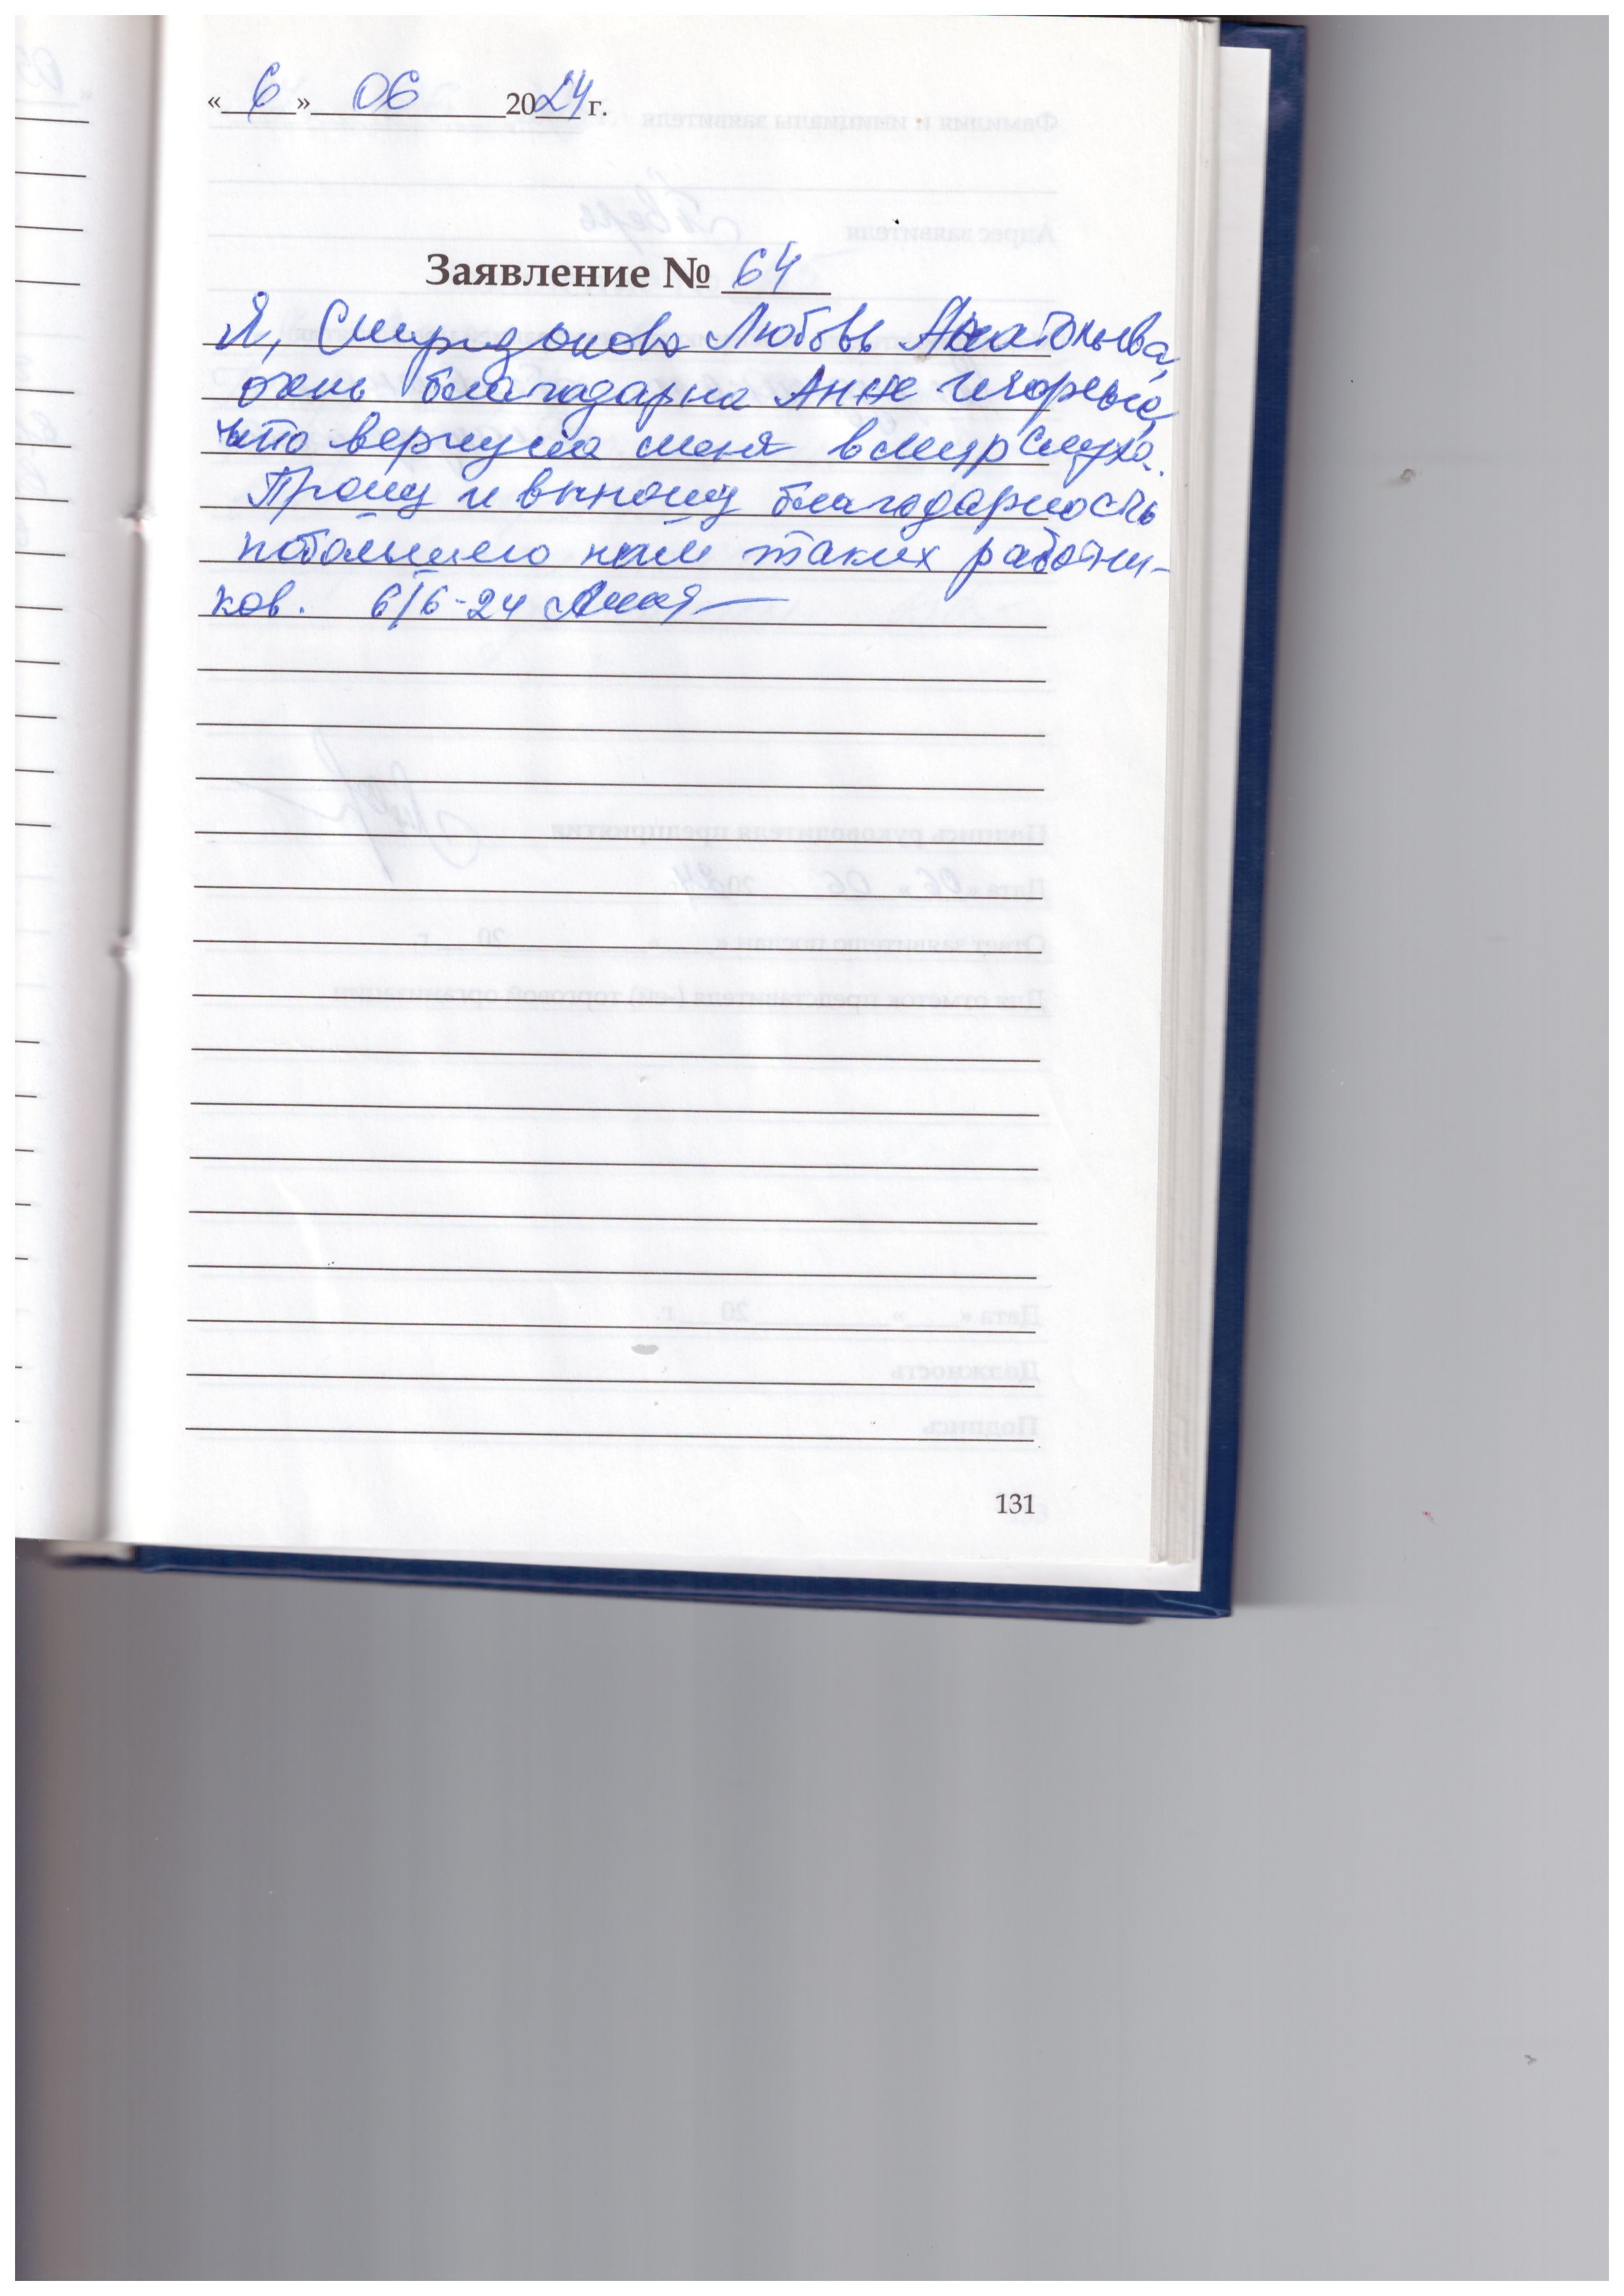 « 6 » 06 2024 г.
Заявление № 64
Я, Любовь Анатольевна,
очень благодарна Анне Игоревне,
что вернула меня в мир слуха.
Прошу и выношу благодарность
побольше нам таких работни-
ков. 6/6-24
131